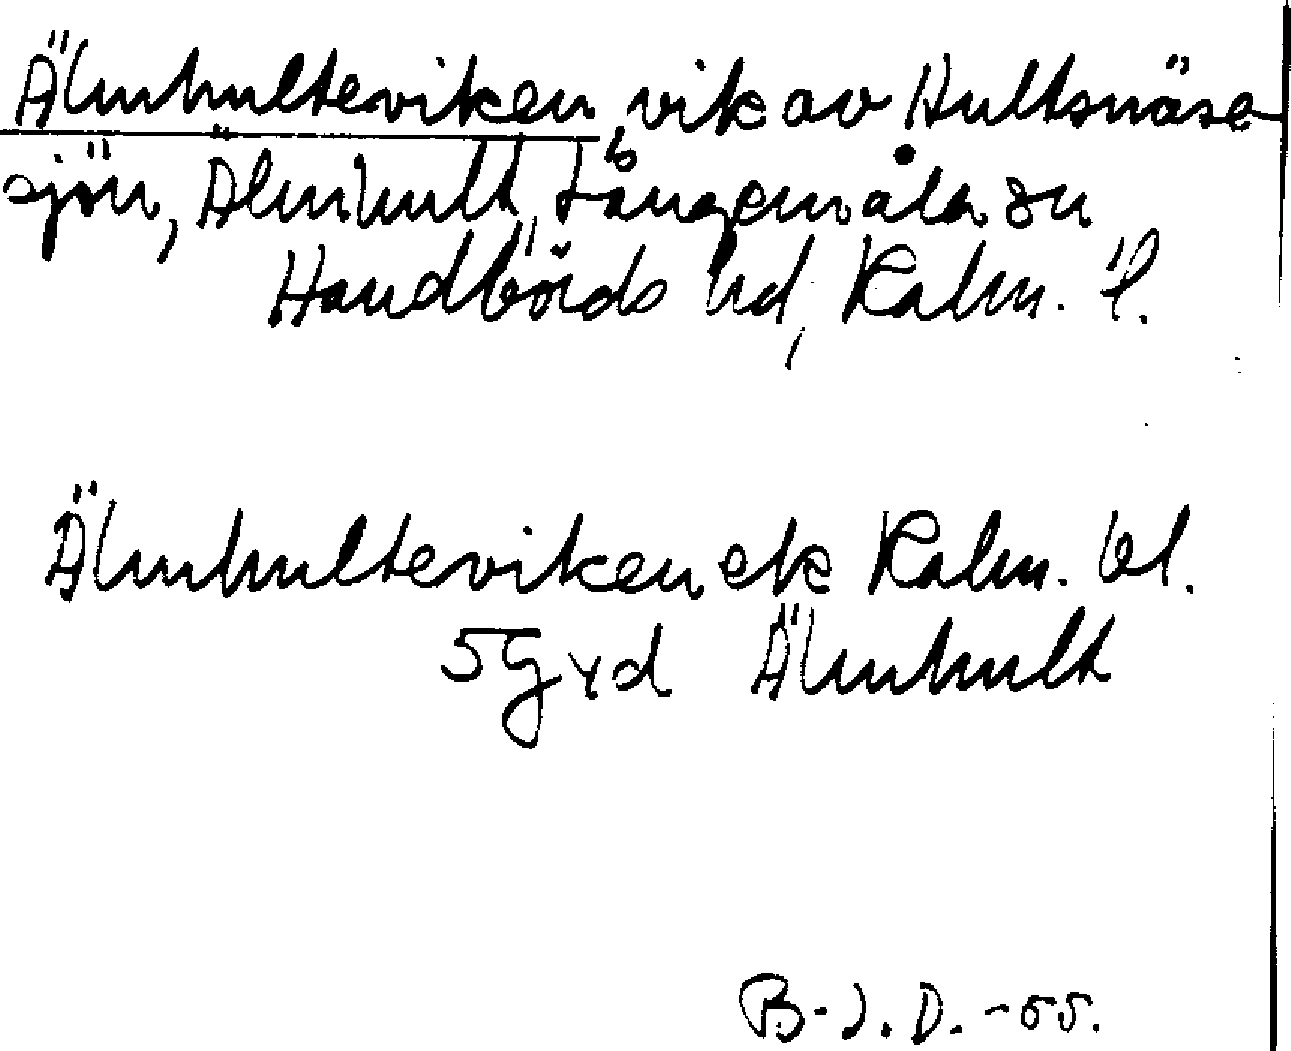 Älmhulteviken, vik av Hultsnäsa-
sjön, Älmhult, Långemåla sn
Handbörds hd, Kalm. l.
Älmhulteviken ek Kalm. bl.
5 G y d Älmhult
B-J. D. -55.